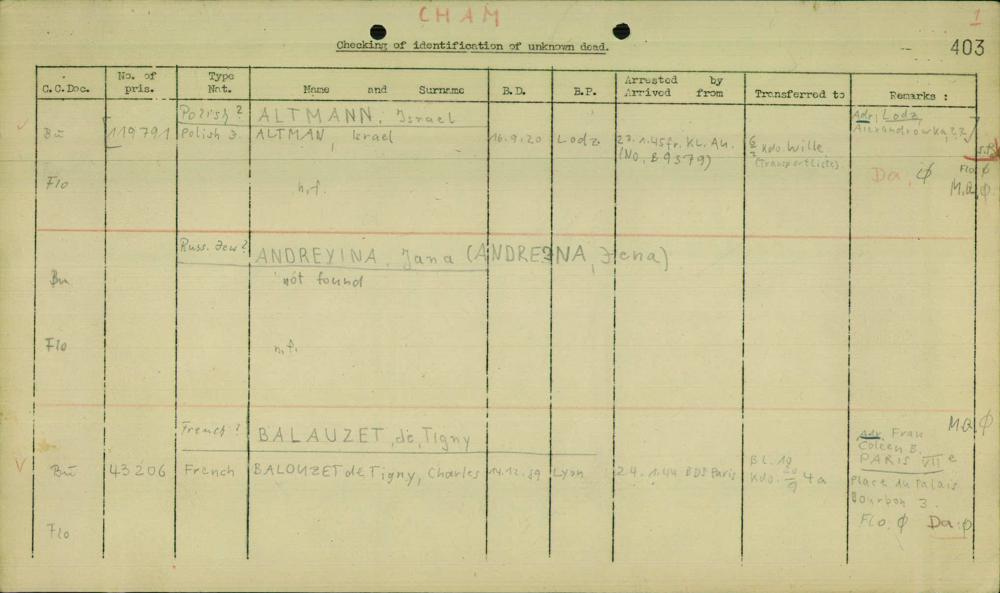 CHAM
1
Checking of identification of unknown dead.
403
C.C.Doc. No. of pris. Type Nat. Name and Surname B.D. B.P. Arrested by Arrived from Transferred to Remarks :
Polish ? ALTMANN, Israel Adr. Lodz,
Bu 119791 Polish J. ALTMAN, Israel 16.9.20 Lodz 23.1.45 fr. KL. Au. Kdo. Wille Alexandrowka 22
(No. B 9379) (Transportliste)
Flo n.f. Da. Ø Flo. Ø
M.Q. Ø
Russ. Jew ? ANDREYINA, Jana (ANDREJNA, Jena)
Bu not found
Flo n.f.
M.Q. Ø
French ? BALAUZET, de, Tigny Adr. Frau
Coleen B.
Bu 43206 French BALOUZET de Tigny, Charles 14.12.89 Lyon 24.1.44 BDS Paris Bl. 19 PARIS VII e
Kdo. 20/9 4a Place du Palais
Bourbon 3.
Flo Flo. Ø Da. Ø